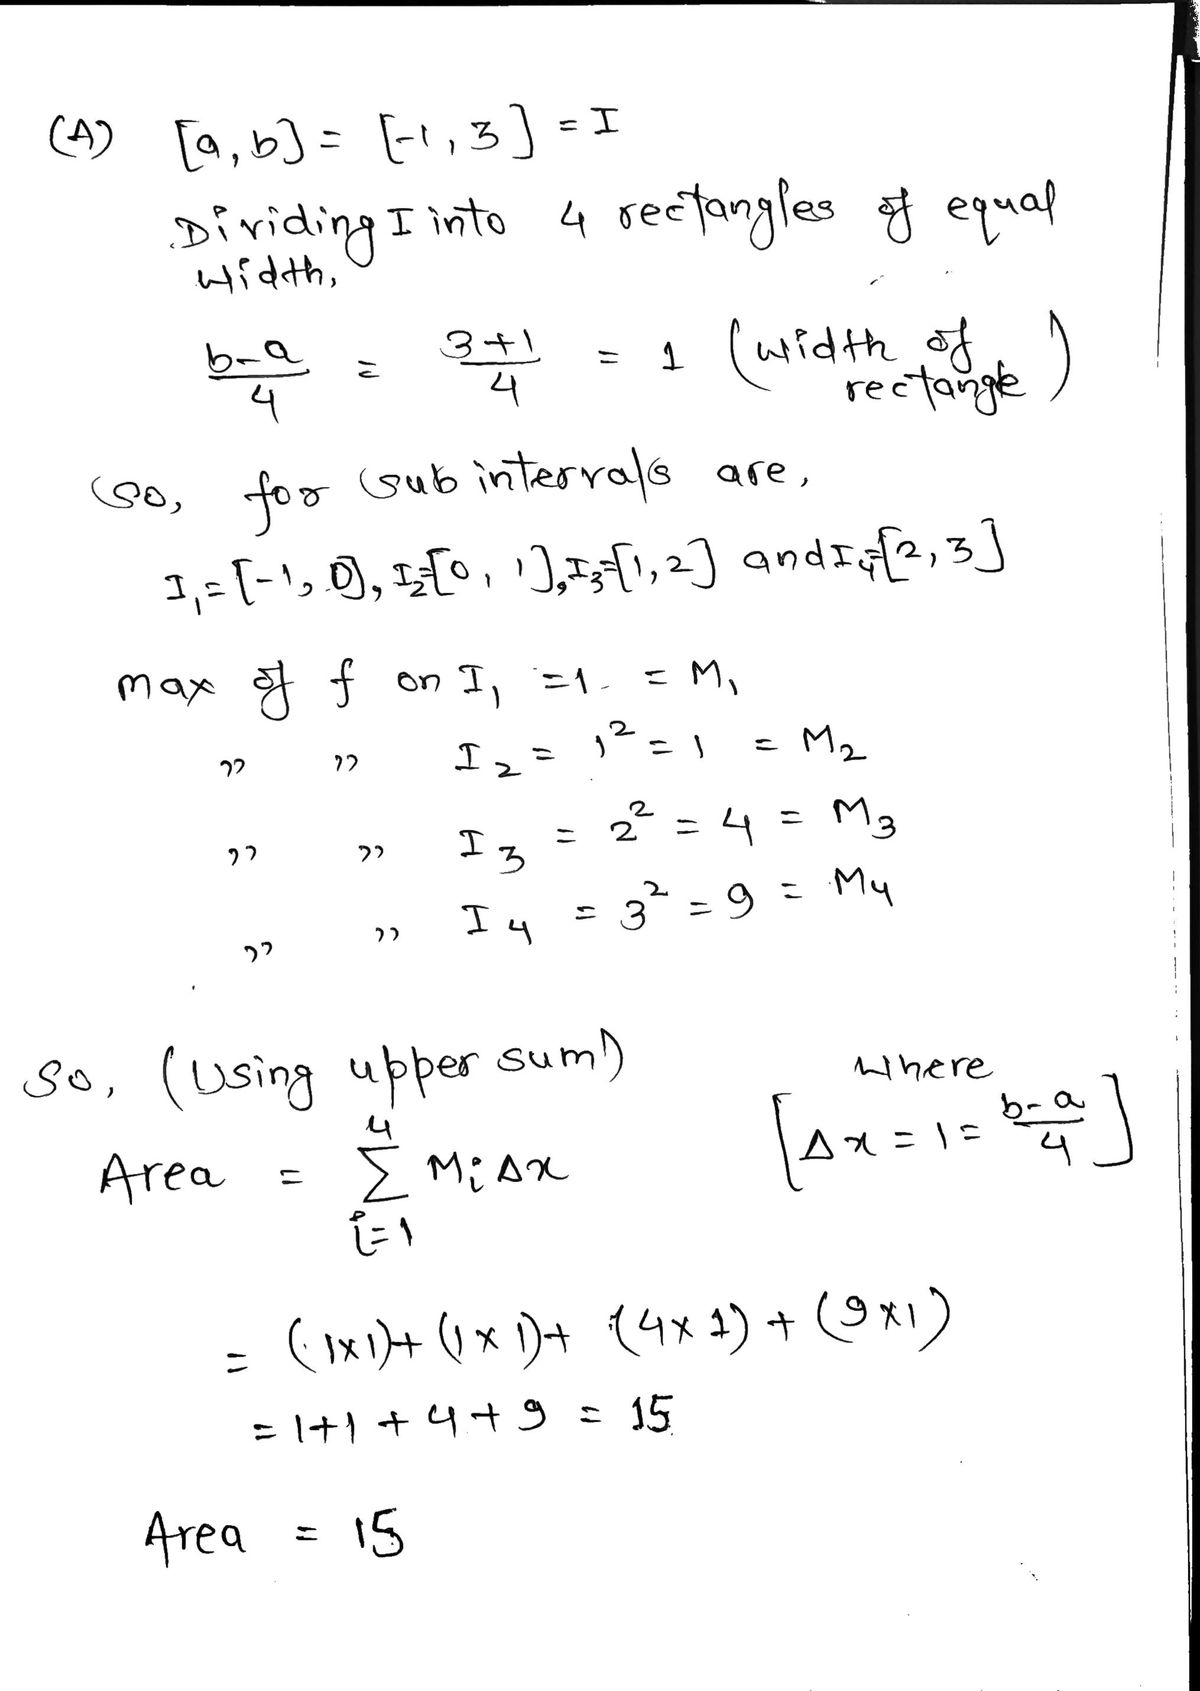 (A) [a, b] = [-1, 3] = I
Dividing I into 4 rectangles of equal
width,
b-a/4 = 3+1/4 = 1 (width of rectangle)
So, for sub intervals are,
I₁ = [-1, 0], I₂=[0, 1], I₃=[1, 2] and I₄=[2, 3]
max of f on I₁ = 1 = M₁
" " I₂ = 1² = 1 = M₂
" " I₃ = 2² = 4 = M₃
" " I₄ = 3² = 9 = M₄
So, (Using upper sum)
Area = ∑_{i=1}^{4} Mᵢ Δx [where Δx = 1 = b-a/4]
= (1×1)+(1×1)+(4×1)+(9×1)
= 1+1+4+9 = 15
Area = 15